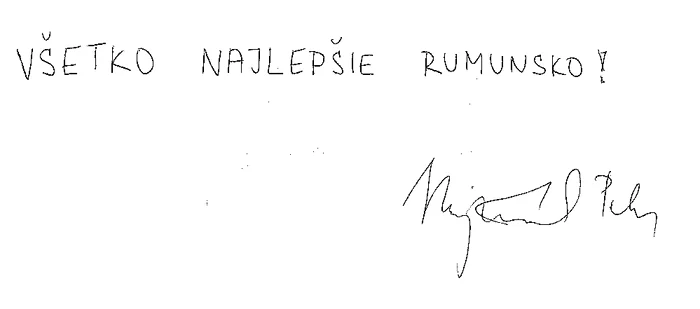 VŠETKO NAJLEPŠIE RUMUNSKO!